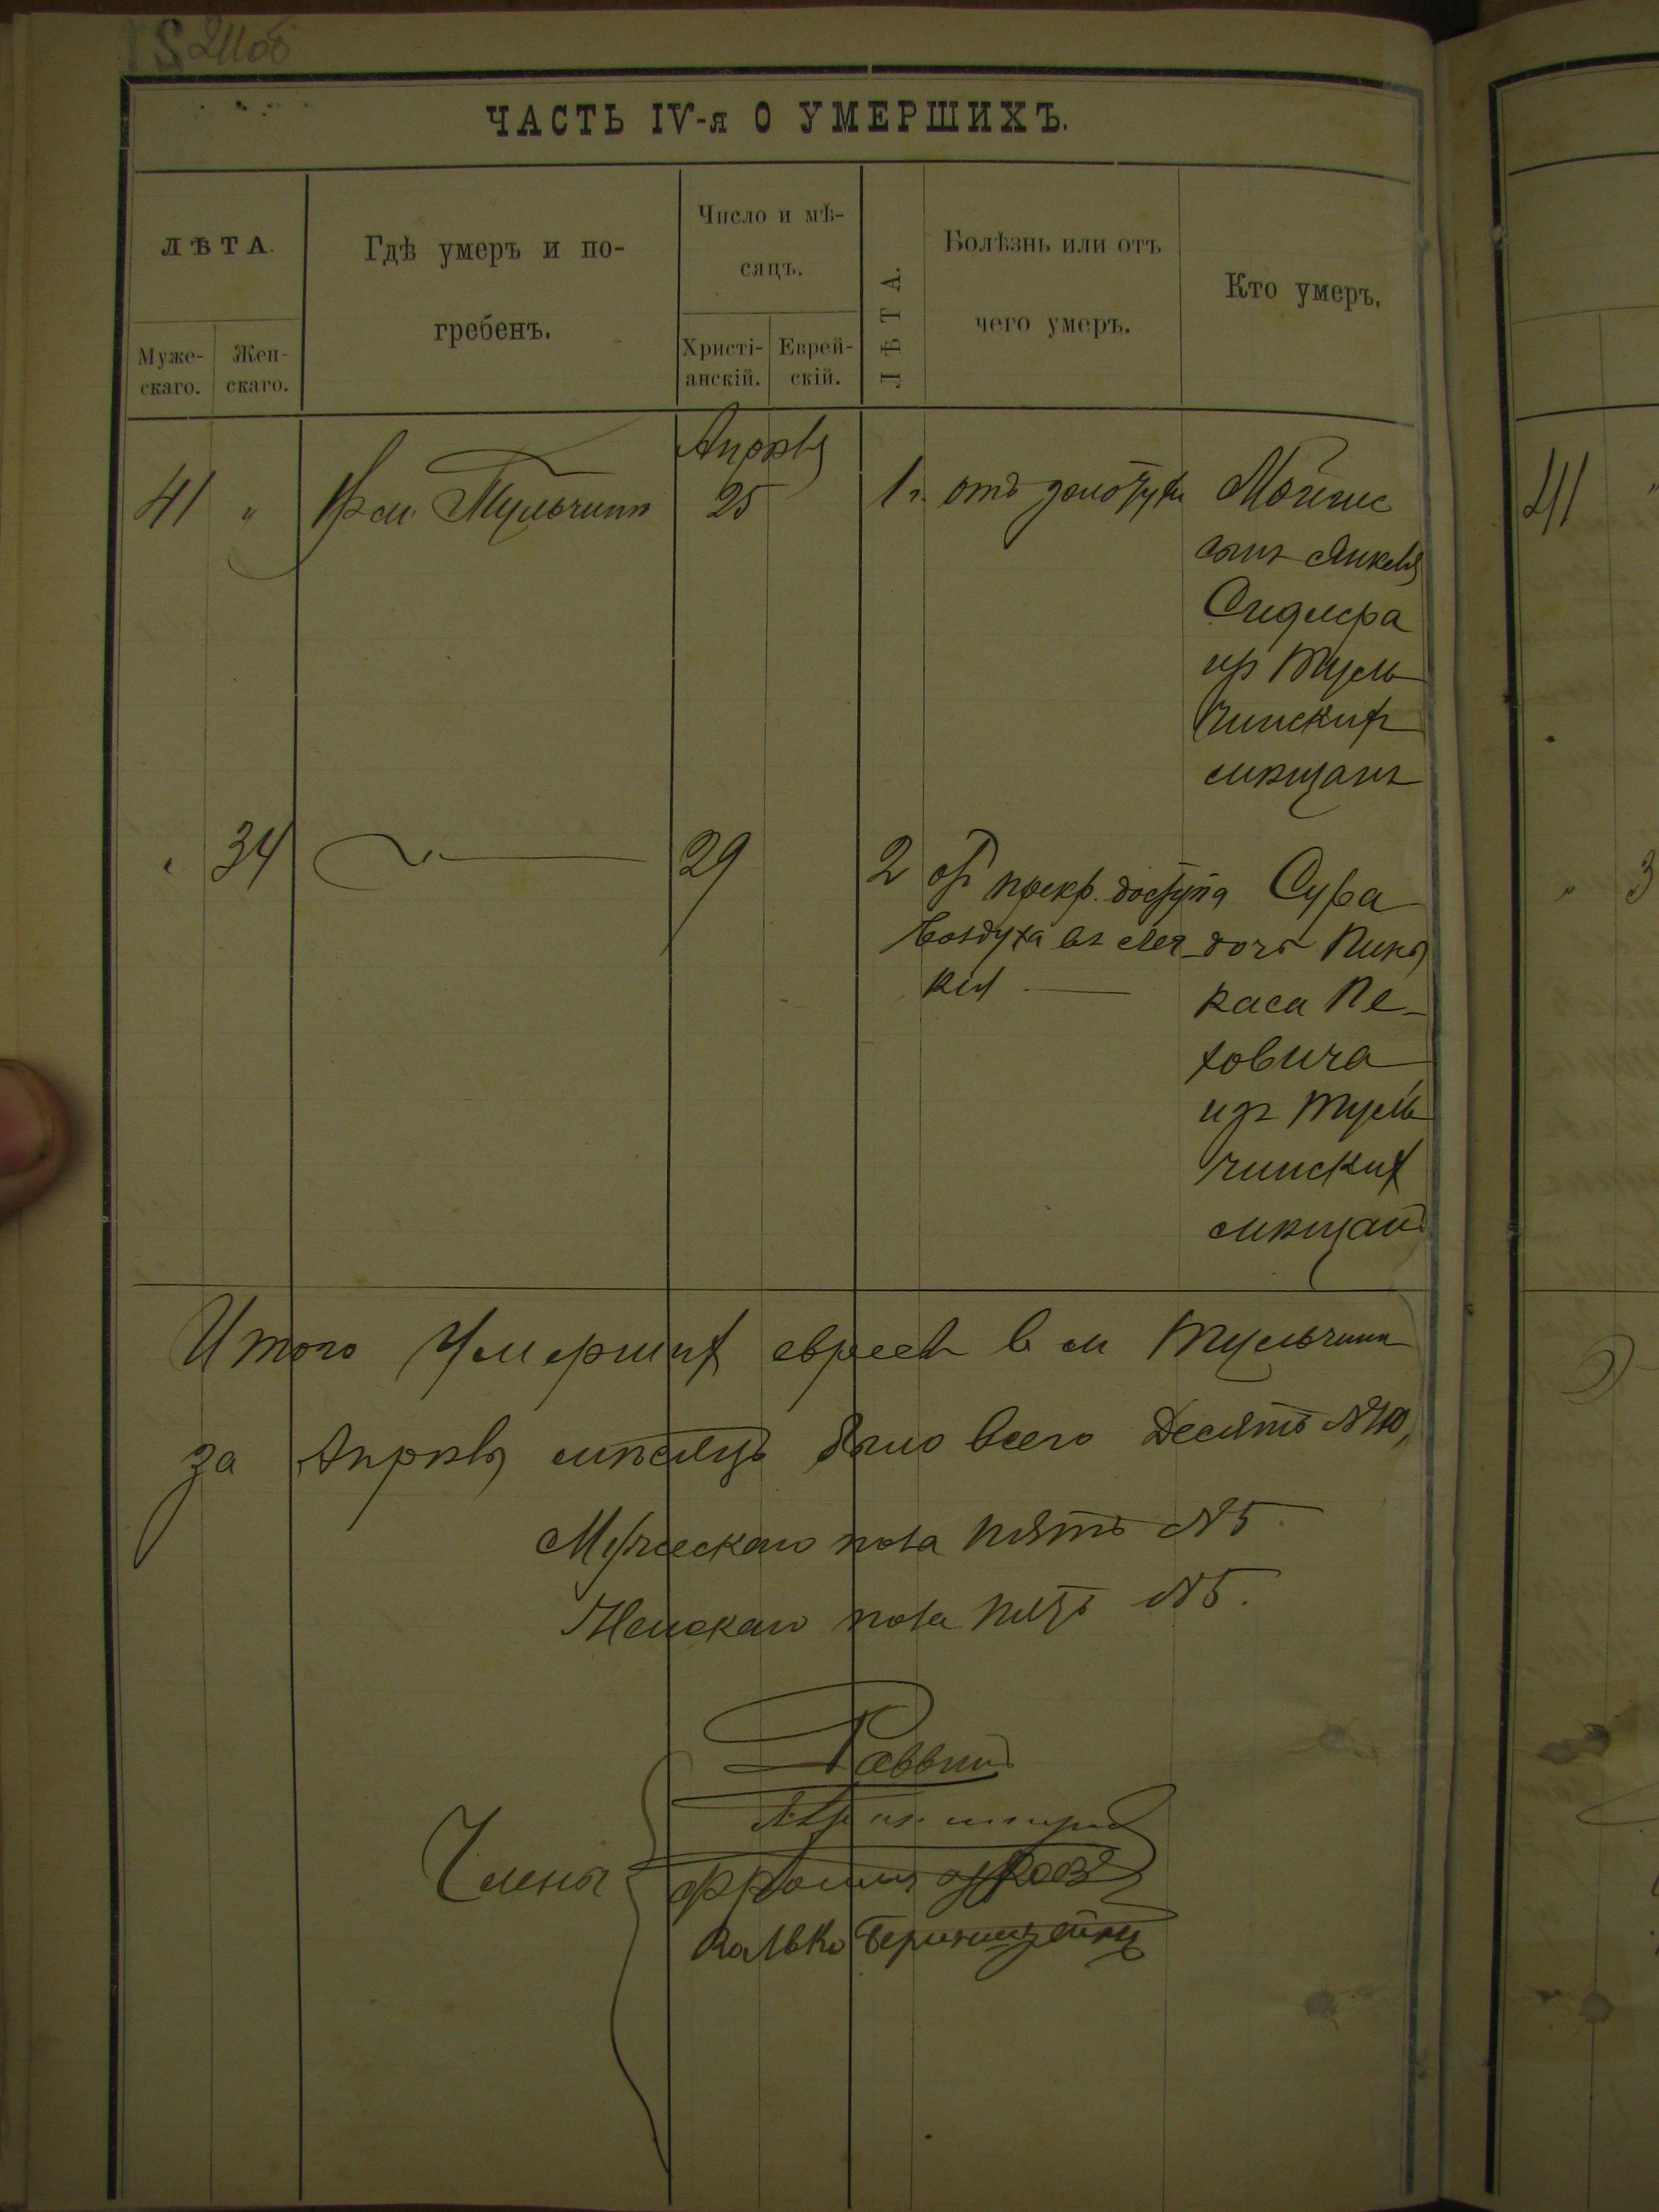 211об
ЧАСТЬ IV-я О УМЕРШИХЪ.
ЛѢТА.
Муже-
скаго.
Жен-
скаго.
Гдѣ умеръ и по-
гребенъ.
Число и мѣ-
сяцъ.
Христі-
анскій.
Еврей-
скій.
ЛѢТА.
Болѣзнь или отъ
чего умеръ.
Кто умеръ.
Апрѣль
41 " м. Тульчинѣ 25 1 г. отъ золотухи Мойше
сынъ Янкеля
Сидлера
изъ Туль
чинскихъ
мѣщанъ
" 34 29 2 отъ прекр. доступа Сура
воздуха въ лег дочь Пинь
кія
каса Пе-
ховича
изъ Туль
чинских
мѣщанъ
Итого умерших евреевъ в м Тульчинѣ
за Апрѣль мѣсяцъ было всего Десять №10,
Мужескаго пола пять №5.
Женскаго пола пять №5.
Раввинъ
Члены
Беринштейнъ
41
3